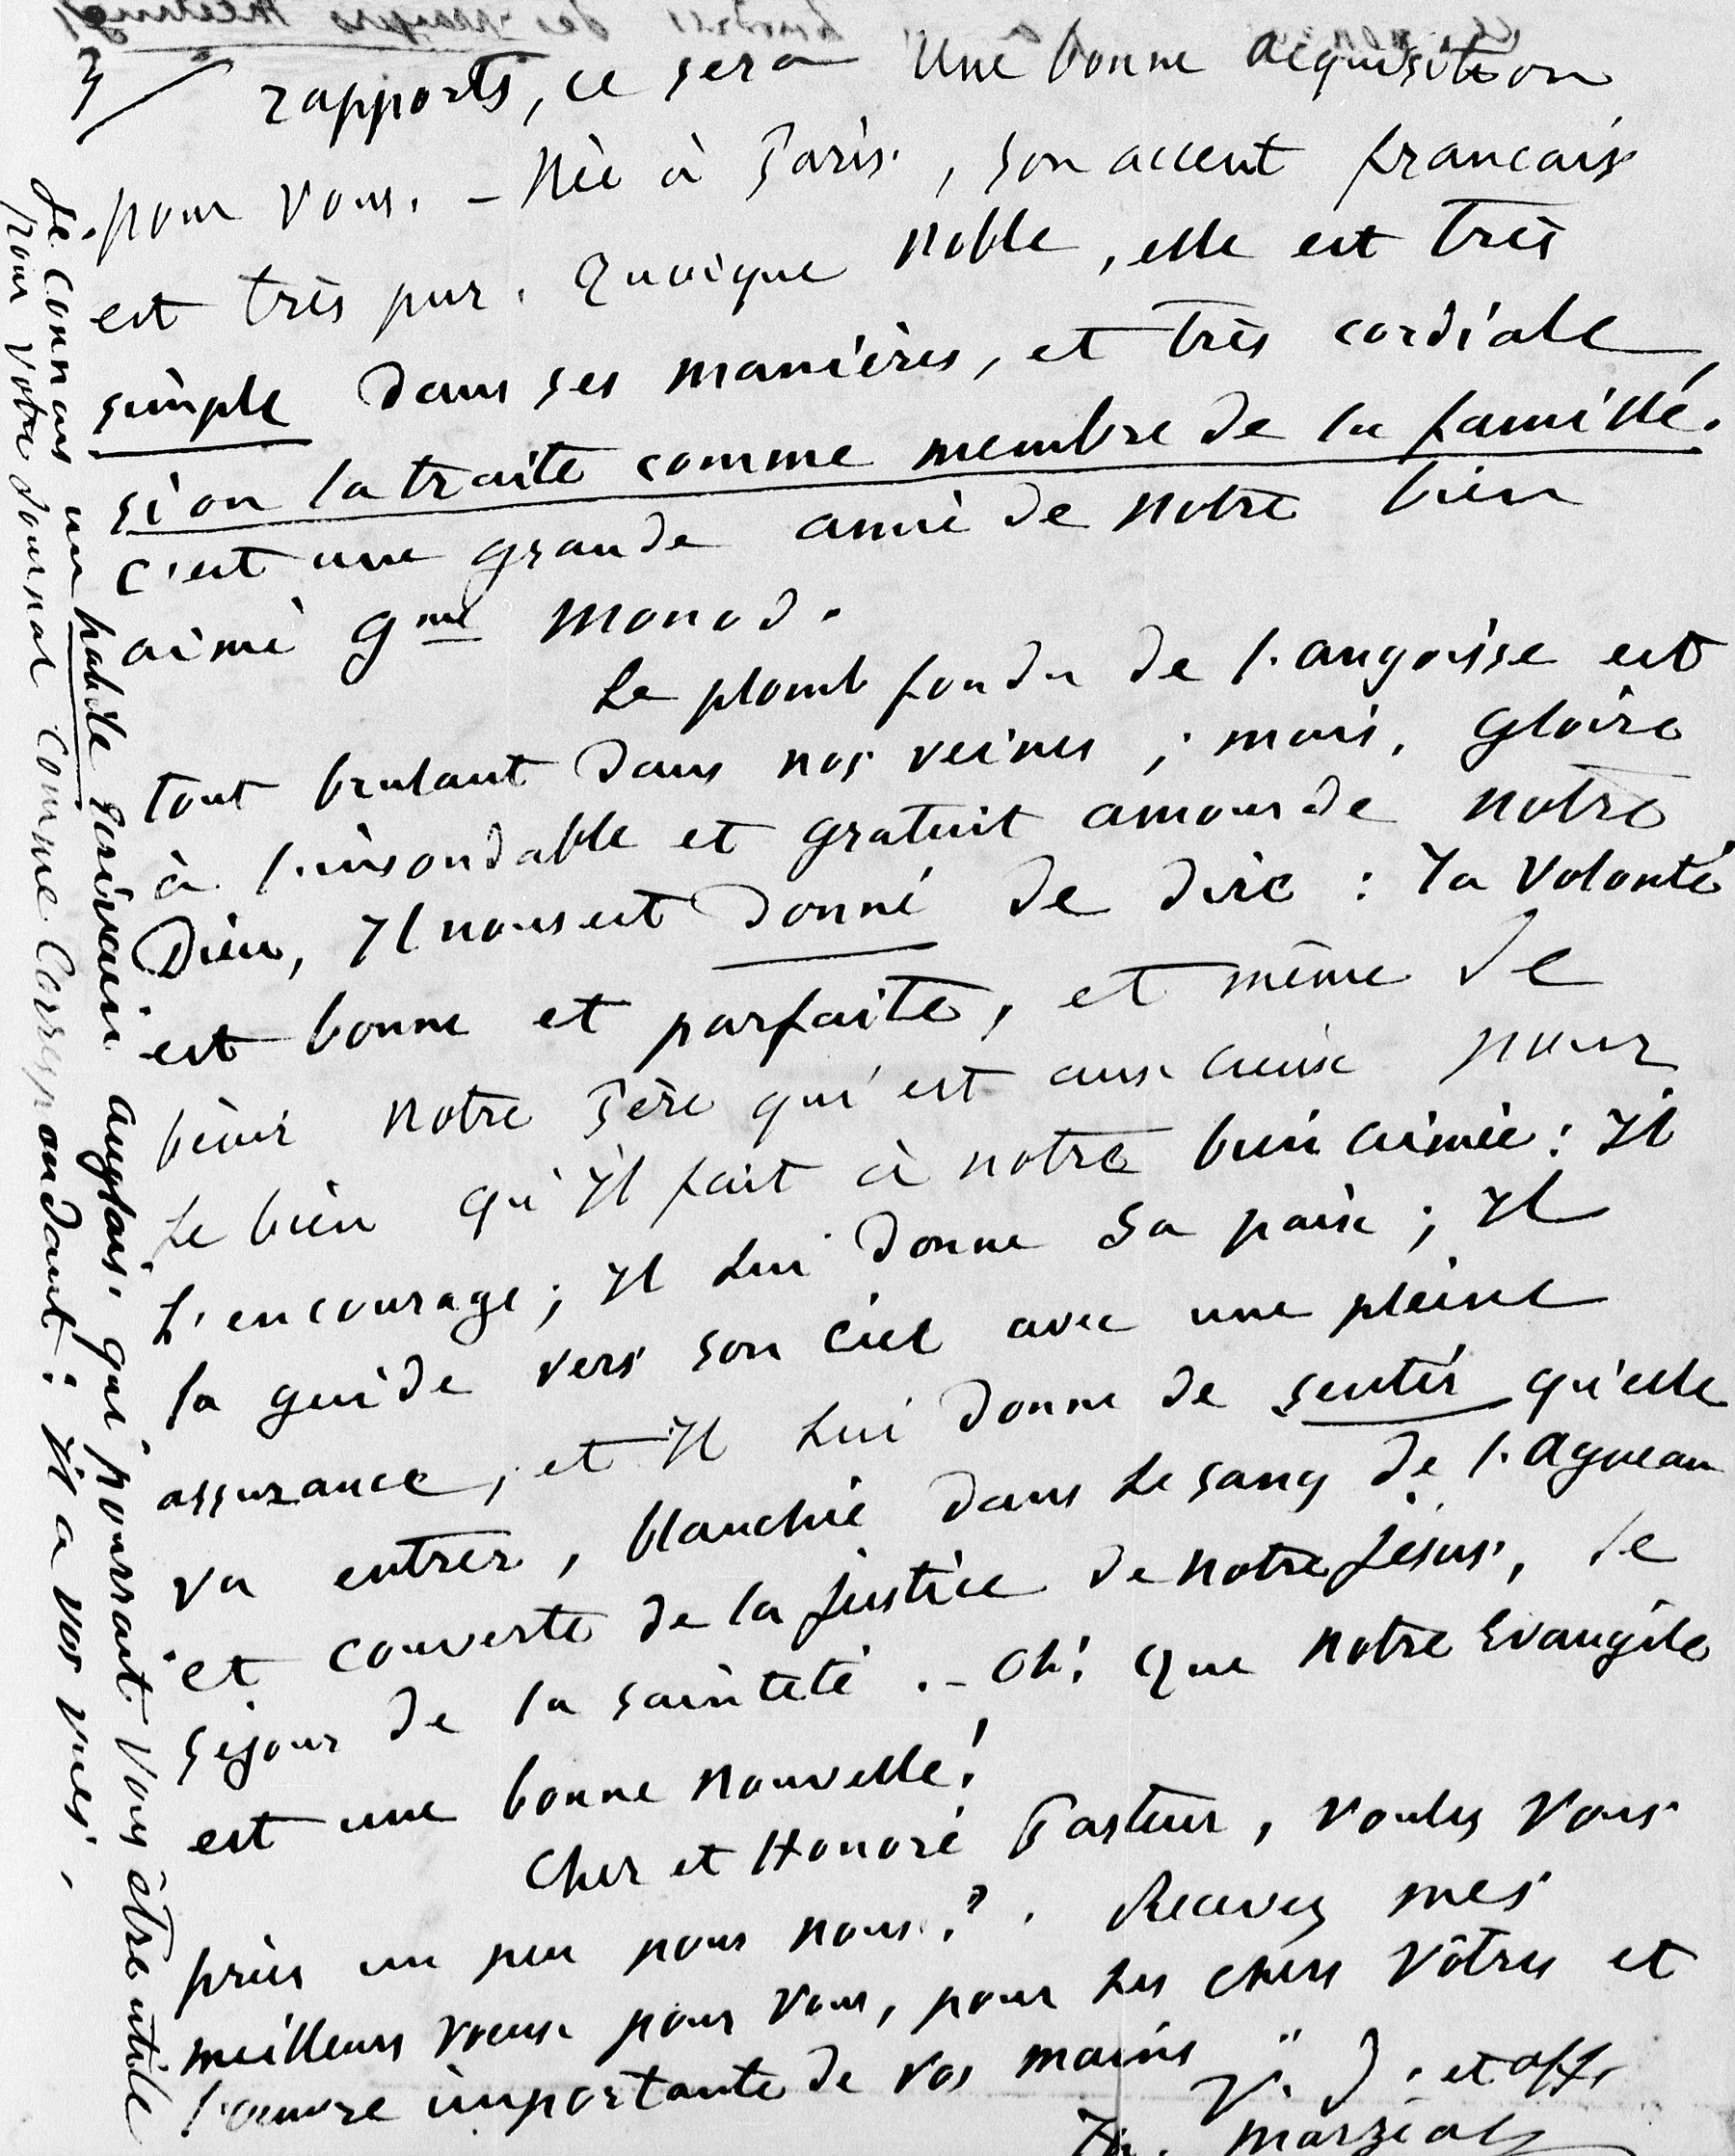 3/ rapports, ce sera Une bonne acquisition
pour vous. – Née à Paris, son accent francais
est très pur. Quoique noble, elle est très
simple dans ses manières, et très cordiale,
si on la traite comme membre de la famille.
C'est une grande amie de notre bien
aimé Gme Monod.
Le plomb fondu de l'angoisse est
tout brulant dans nos veines ; mais, Gloire
à l'insondable et gratuit amour de notre
Dieu, Il nous est donné de dire : Ta Volonté
est bonne et parfaite, et même de
bénir notre Père qui est aux cieux pour
Le bien qu'Il fait à notre bien aimée : Il
L'encourage ; Il Lui donne Sa paix ; Il
la guide vers son Ciel avec une pleine
assurance, et Il Lui donne de sentir qu'elle
va entrer, blanchie dans Le sang de l'Agneau
et couverte de la Justice de notre Jésus, le
séjour de la sainteté. – Oh! Que notre Evangile
est une bonne nouvelle!
Cher et Honoré Pasteur, voulez vous
prier un peu pour nous ? . Recevez mes
meilleurs voeux pour vous, pour Les chers Vôtres et
l'oeuvre importante de vos mains
V. D. et aff.
Th. Marzials
Je connais un habile Ecrivain anglais, qui pourrait vous être utile
pour votre Journal comme Correspondant : Il a vos vues.